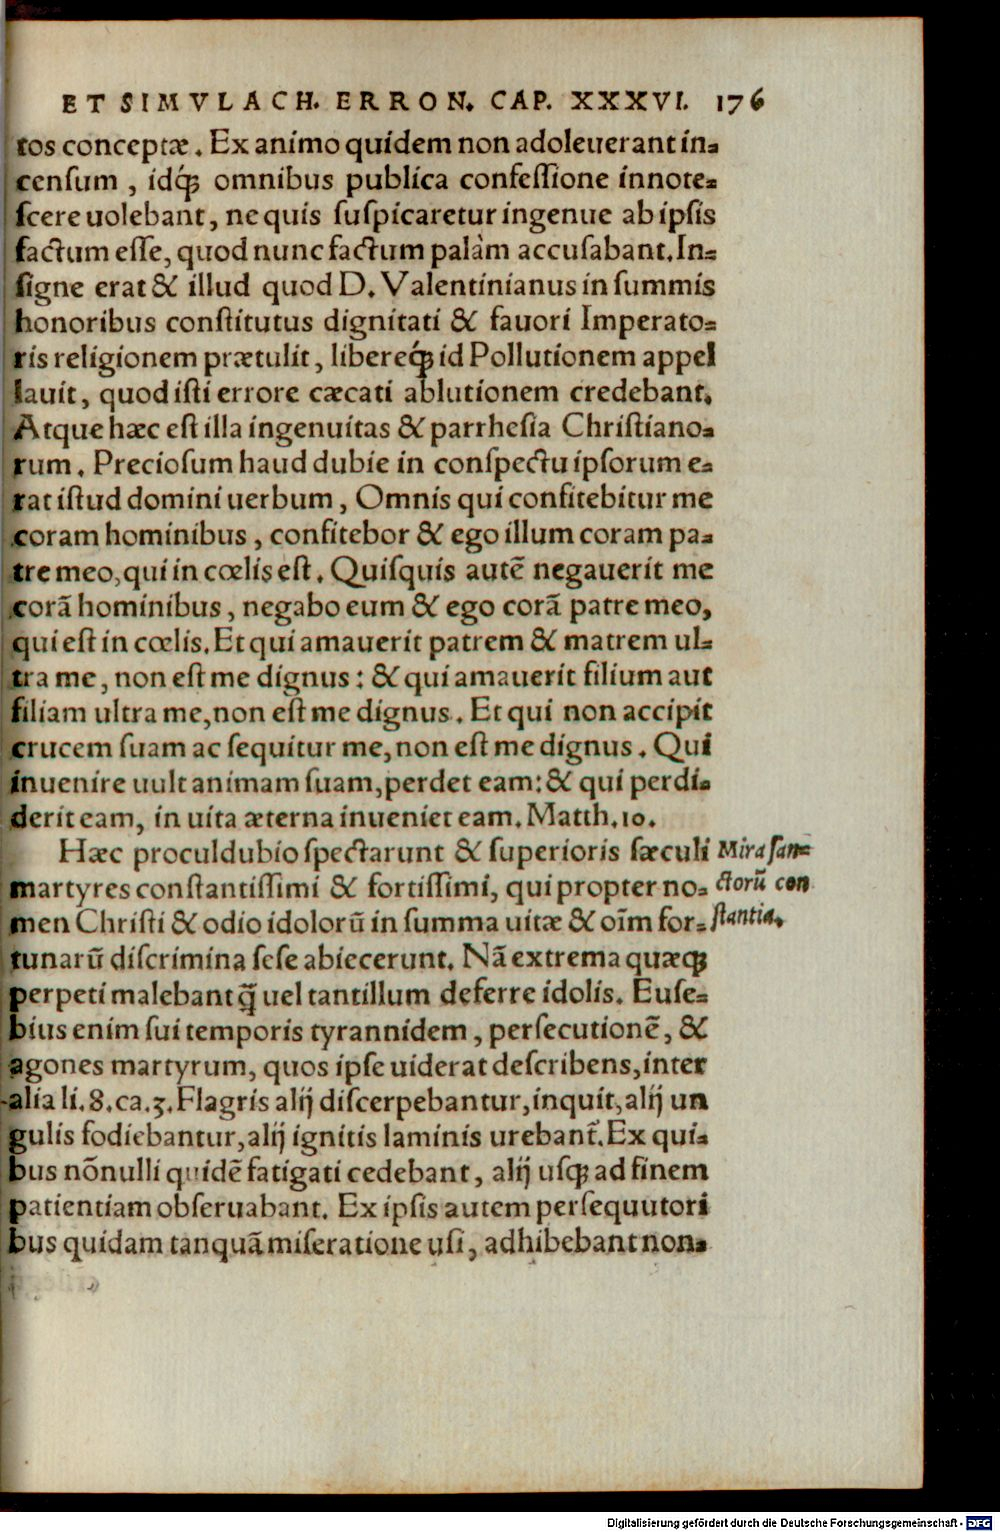 ET SIMVLACH. ERRON. CAP. XXXVI. 176
tos conceptæ. Ex animo quidem non adoleuerant in-
censum, idq́ꝫ omnibus publica confessione innote-
scere uolebant, ne quis suspicaretur ingenue ab ipsis
factum esse, quod nunc factum palàm accusabant. In-
signe erat & illud quod D. Valentinianus in summis
honoribus constitutus dignitati & fauori Imperato-
ris religionem prætulit, libereq́ꝫ id Pollutionem appel
lauit, quod isti errore cæcati ablutionem credebant.
Atque hæc est illa ingenuitas & parrhesia Christiano-
rum. Preciosum haud dubie in conspectu ipsorum e-
rat istud domini uerbum, Omnis qui confitebitur me
coram hominibus, confitebor & ego illum coram pa-
tre meo, qui in cœlis est. Quisquis autē negauerit me
corā hominibus, negabo eum & ego corā patre meo,
qui est in cœlis. Et qui amauerit patrem & matrem ul-
tra me, non est me dignus: & qui amauerit filium aut
filiam ultra me, non est me dignus. Et qui non accipit
crucem suam ac sequitur me, non est me dignus. Qui
inuenire uult animam suam, perdet eam: & qui perdi-
derit eam, in uita æterna inueniet eam. Matth. 10.
Hæc proculdubio spectarunt & superioris sæculi
martyres constantissimi & fortissimi, qui propter no-
men Christi & odio idolorū in summa uitæ & oīm for-
tunarū discrimina sese abiecerunt. Nā extrema quæqꝫ
perpeti malebant q̄ uel tantillum deferre idolis. Euse-
bius enim sui temporis tyrannidem, persecutionē, &
agones martyrum, quos ipse uiderat describens, inter
alia li. 8. ca. 3. Flagris alij discerpebantur, inquit, alij un
gulis fodiebantur, alij ignitis laminis urebant̄. Ex qui-
bus nōnulli quidē fatigati cedebant, alij usqꝫ ad finem
patientiam obseruabant. Ex ipsis autem persequutori
bus quidam tanquā miseratione usi, adhibebant non-
Mira san-
ctorū con
stantia.
Digitalisierung gefördert durch die Deutsche Forschungsgemeinschaft - DFG